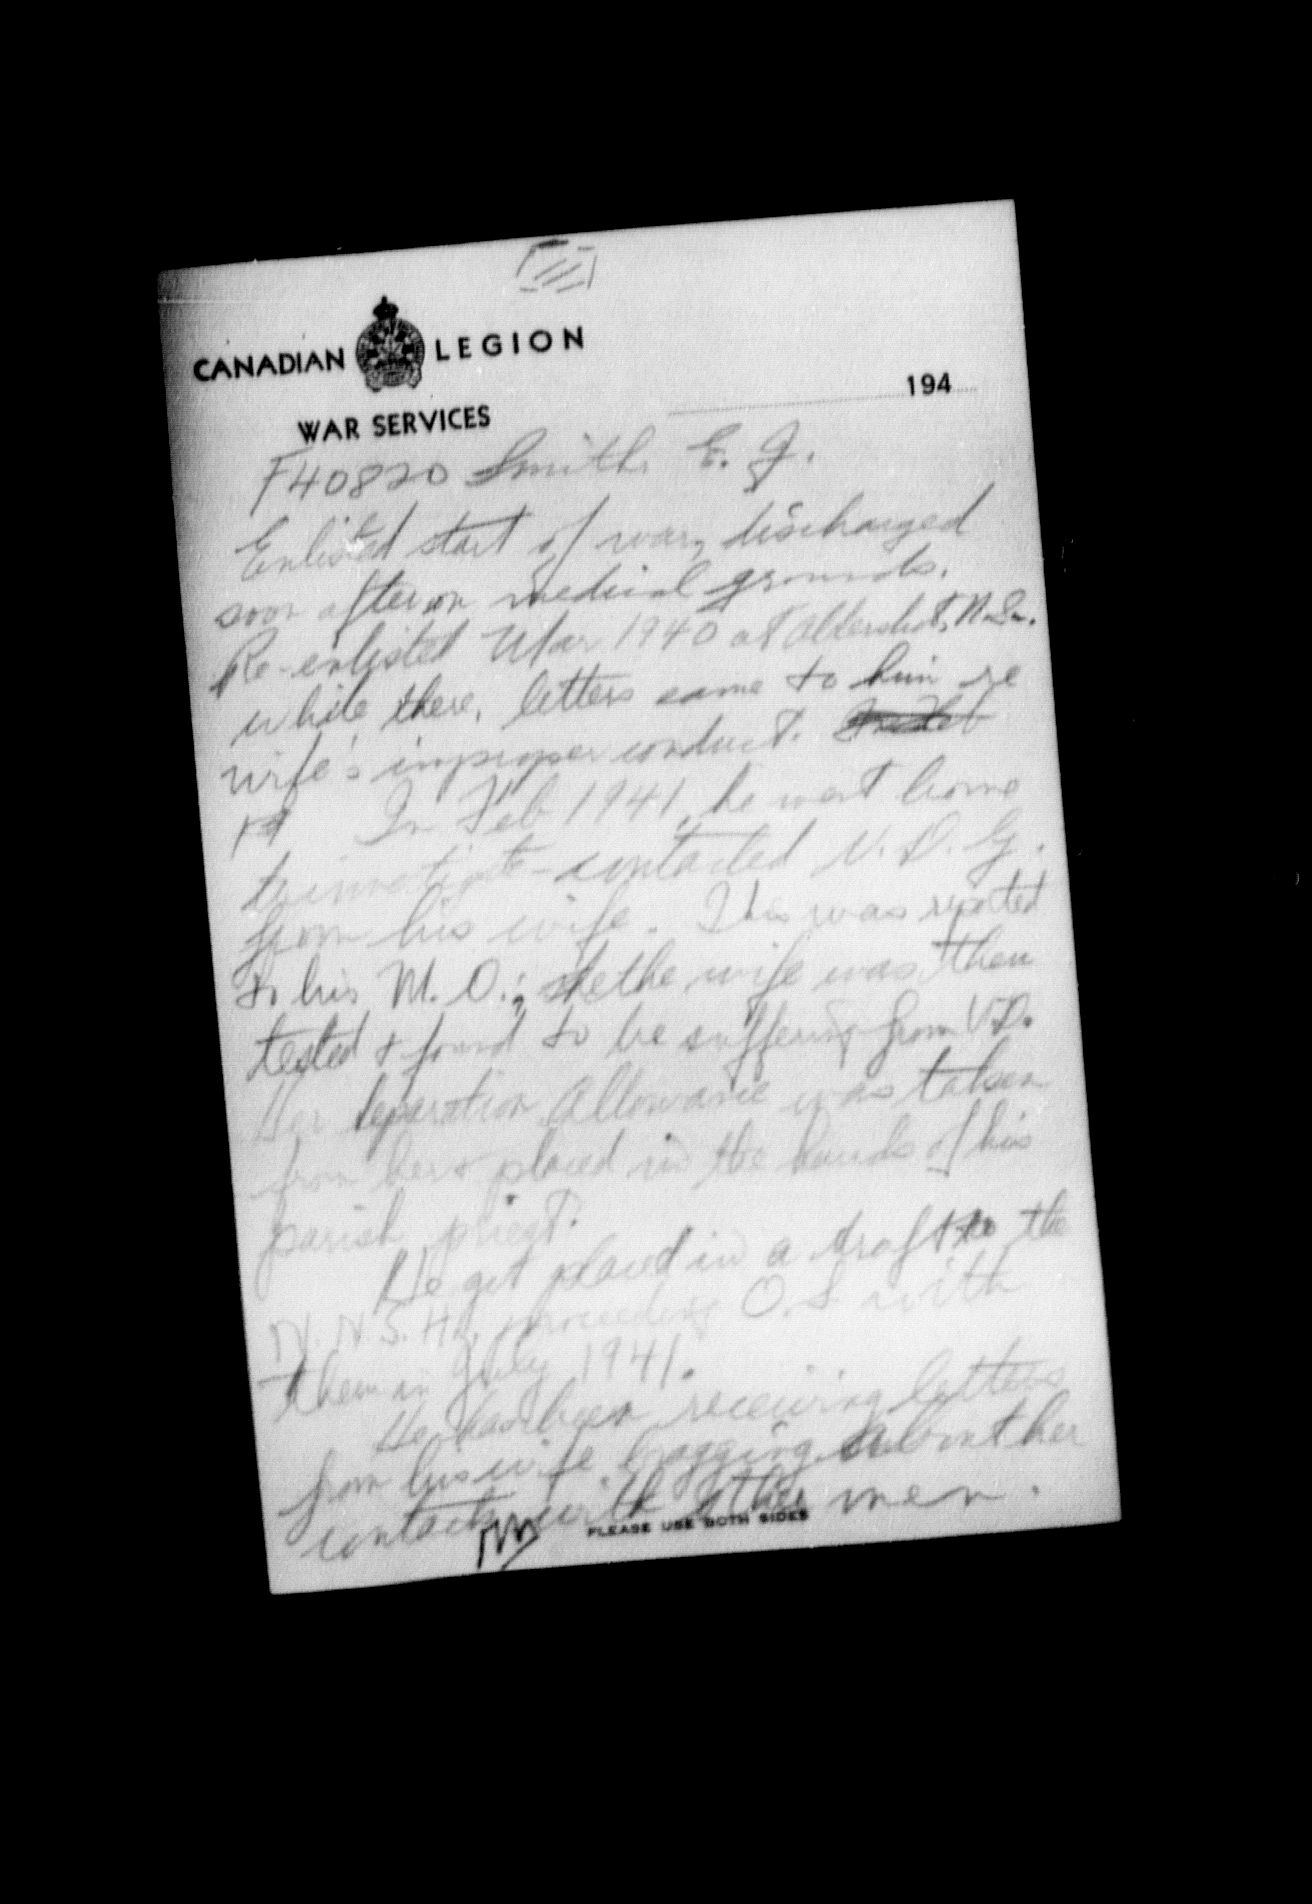 CANADIAN LEGION
WAR SERVICES
194
F40820 Smith E. J.
Enlisted start of war, discharged
soon after on medical grounds.
Re-enlisted Mar 1940 at Aldershot, N.S.
while there, letters came to him re
wife's improper conduct.
In Feb 1941, he went home
to investigate - contacted V. D. G.
from his wife. This was reported
to his M. O.; the wife was then
tested & found to be suffering from V.D.
Her Separation Allowance was taken
from her & placed in the hands of his
parish priest.
He got placed in a draft to the
N. N. S. H., proceeding O.S. with
them in July 1941.
He has been receiving letters
from his wife bragging about her
contacts with other men.
PLEASE USE BOTH SIDES